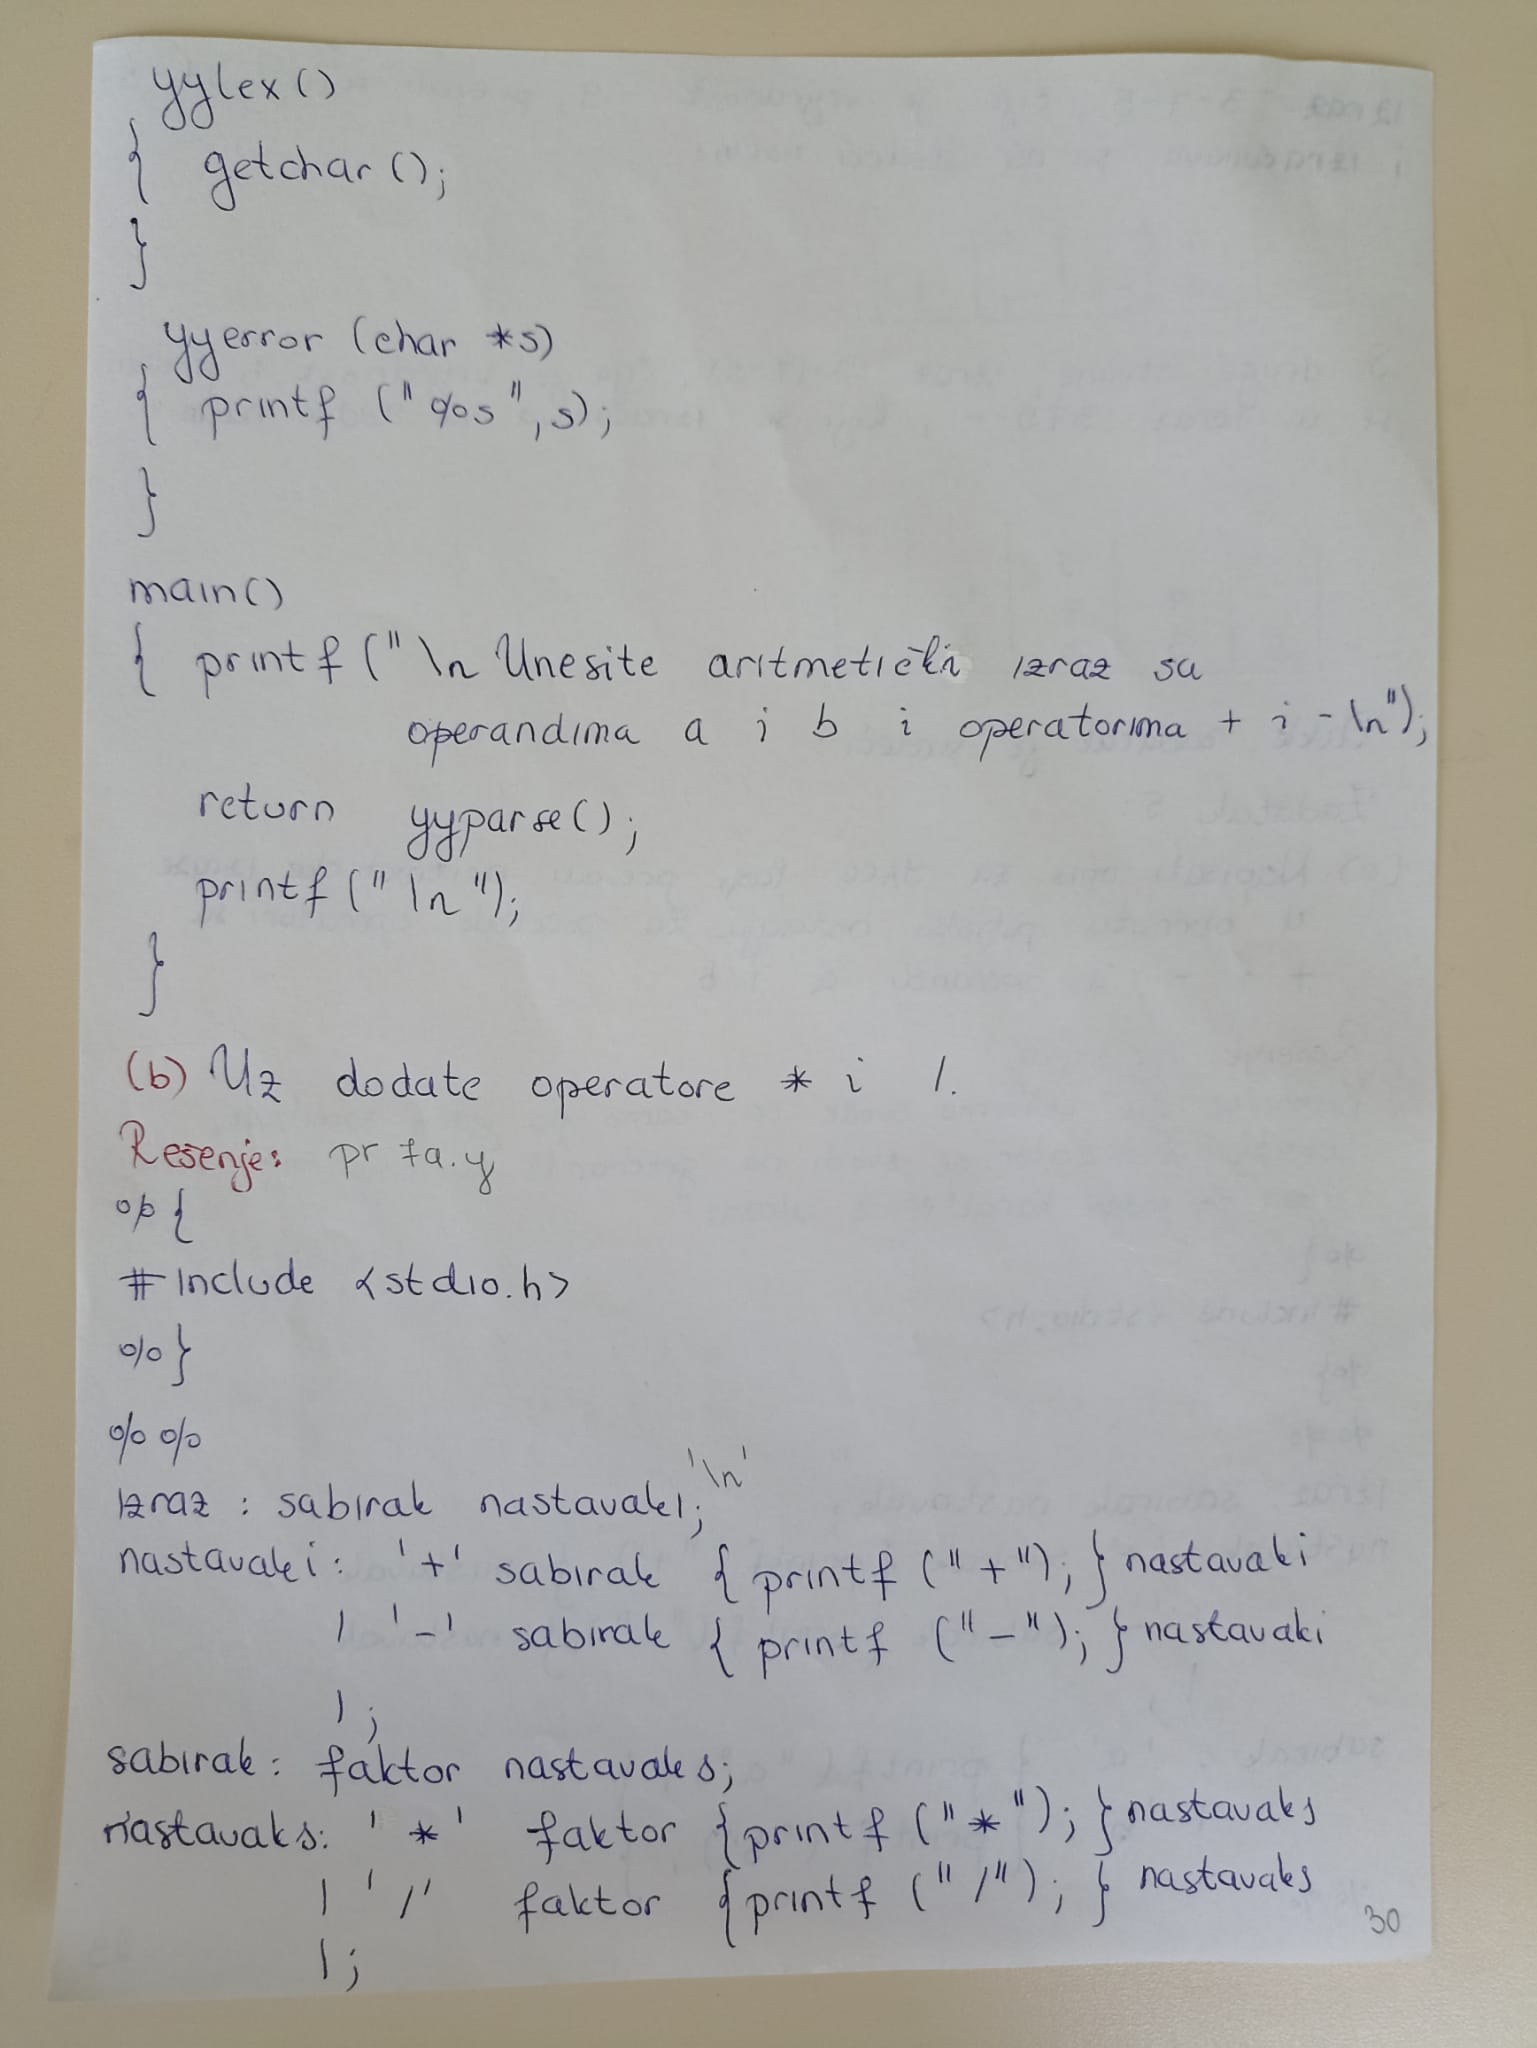 yylex()
{ getchar();
}
yyerror (char *s)
{ printf ("%s", s);
}
main()
{ printf ("\n Unesite aritmetički izraz sa
operandima a i b i operatorima + i - \n");
return yyparse();
printf ("\n");
}
(b) Uz dodate operatore * i /.
Rešenje: prfa.y
%{
#include <stdio.h>
%}
%%
izraz : sabirak nastavaki '\n';
nastavaki: '+' sabirak { printf ("+"); } nastavaki
| '-' sabirak { printf ("-"); } nastavaki
| ;
sabirak: faktor nastavaks;
nastavaks: '*' faktor {printf ("*"); } nastavaks
| '/' faktor {printf ("/"); } nastavaks
| ;
30